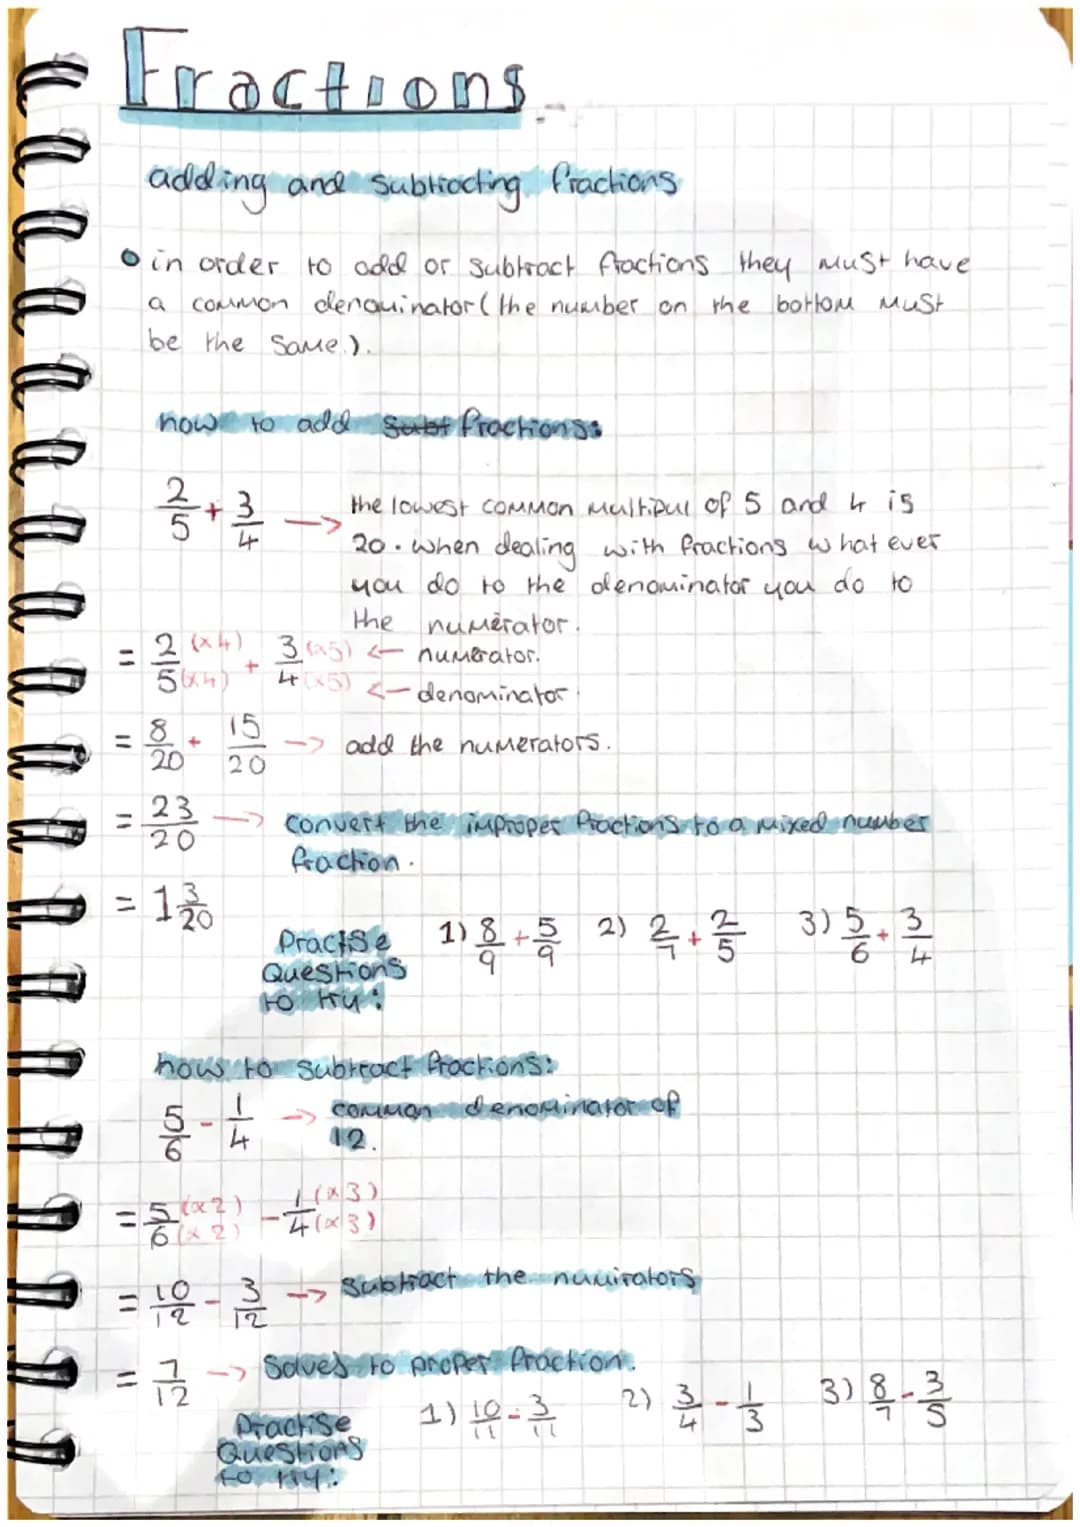 Fractions
adding and subtracting fractions
in order to add or subtract fractions they must have
a common denouinator (the number on the bottom must
be the same.).
how to add subt fractions:
2/5 + 3/4 → the lowest common multipul of 5 and 4 is
20. when dealing with fractions what ever
you do to the denominator you do to
the numerator.
= 2 (x4) / 5 (x4) + 3 (x5) / 4 (x5) ← numerator.
← denominator.
= 8/20 + 15/20 → add the numerators.
= 23/20 → convert the improper fractions to a mixed number
fraction.
= 1 3/20
Practise
Questions
to try:
1) 8/9 + 5/9 2) 2/7 + 2/5 3) 5/6 + 3/4
how to subtract fractions:
5/6 - 1/4 → common denominator of
12.
= 5 (x2) / 6 (x2) - 1 (x3) / 4 (x3)
= 10/12 - 3/12 → subtract the numirators
= 7/12 → Solves to proper fraction.
Practise
Questions
to try:
1) 10/11 - 3/11 2) 3/4 - 1/3 3) 8/7 - 3/5